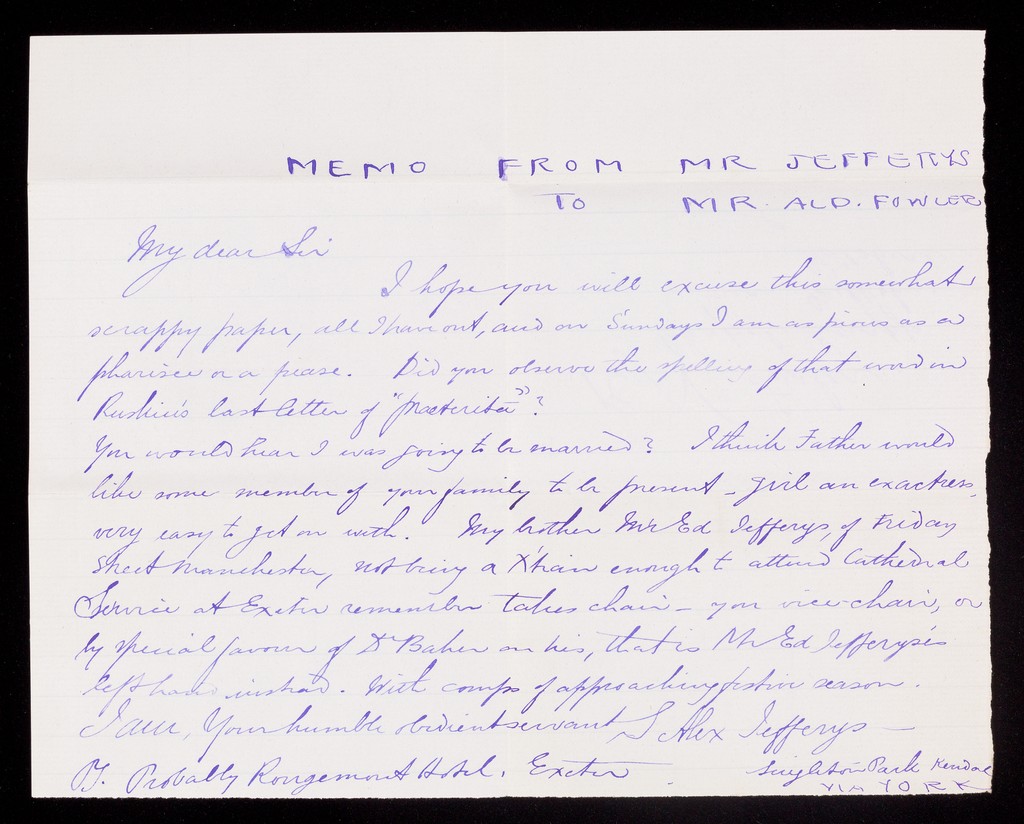 MEMO FROM MR JEFFERYS
TO MR. ALD. FOWLER
My dear Sir
I hope you will excuse this somewhat
scrappy paper, all I have out, and on Sundays I am as pious as a
pharisee or a piease. Did you observe the spelling of that word in
Ruskin's last letter of "praeterita"?
You would hear I was going to be married? I think Father would
like some member of your family to be present - girl an exactress,
very easy to get on with. My brother Mr Ed Jefferys, of Friday
Street Manchester, not being a X'tian enough to attend Cathedral
Service at Exeter remember takes chair - you vice-chair, or
by special favour of Dr Baker on his, that is Mr Ed Jefferys's
left hand instead. With comps of approaching festive season.
I am, Your humble obedient servant S Alex Jefferys
P.S. Probably Rougemont Hotel, Exeter
Singleton Park Kendal
VIA YORK